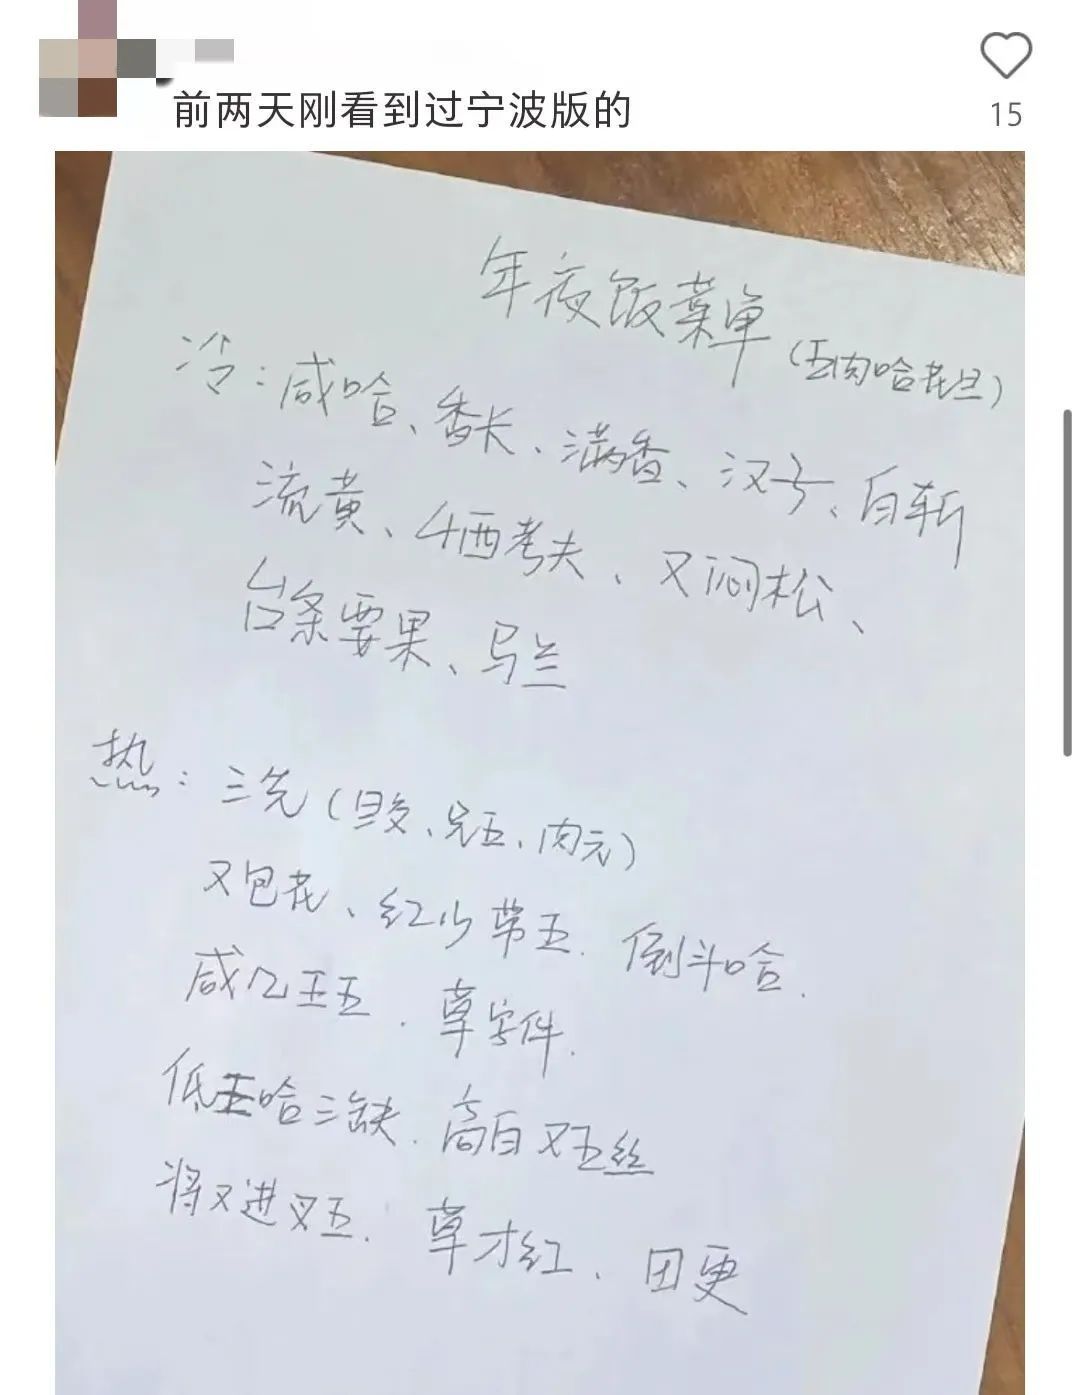 前两天刚看到过宁波版的
15
年夜饭菜单(五肉哈花旦)
冷:咸哈、香长、满香、汉号、白斩
流黄、4西考夫、又闷松、
台条要果、马兰
热:三先(旦交、兄五、肉元)
又包花、红少带五.倒斗哈.
咸几王五.草字件.
低五哈三缺.高白又五丝
将又进又五.草才红、团更